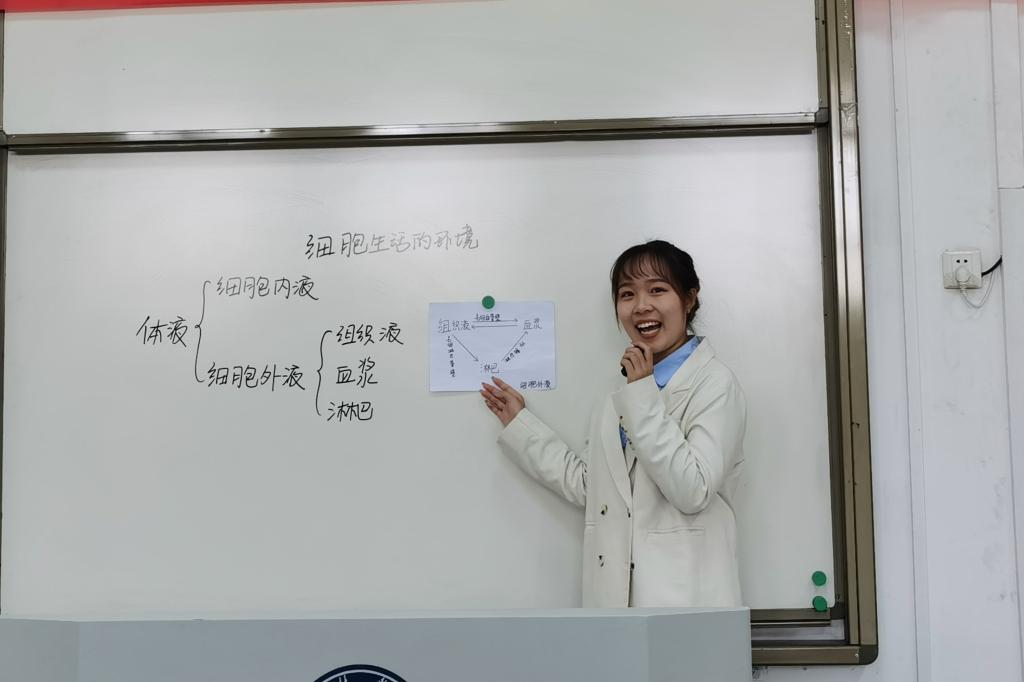 细胞生活的环境
细胞内液
体液
细胞外液
组织液
血浆
淋巴
组织液
毛细血管壁
血浆
淋巴
细胞外液